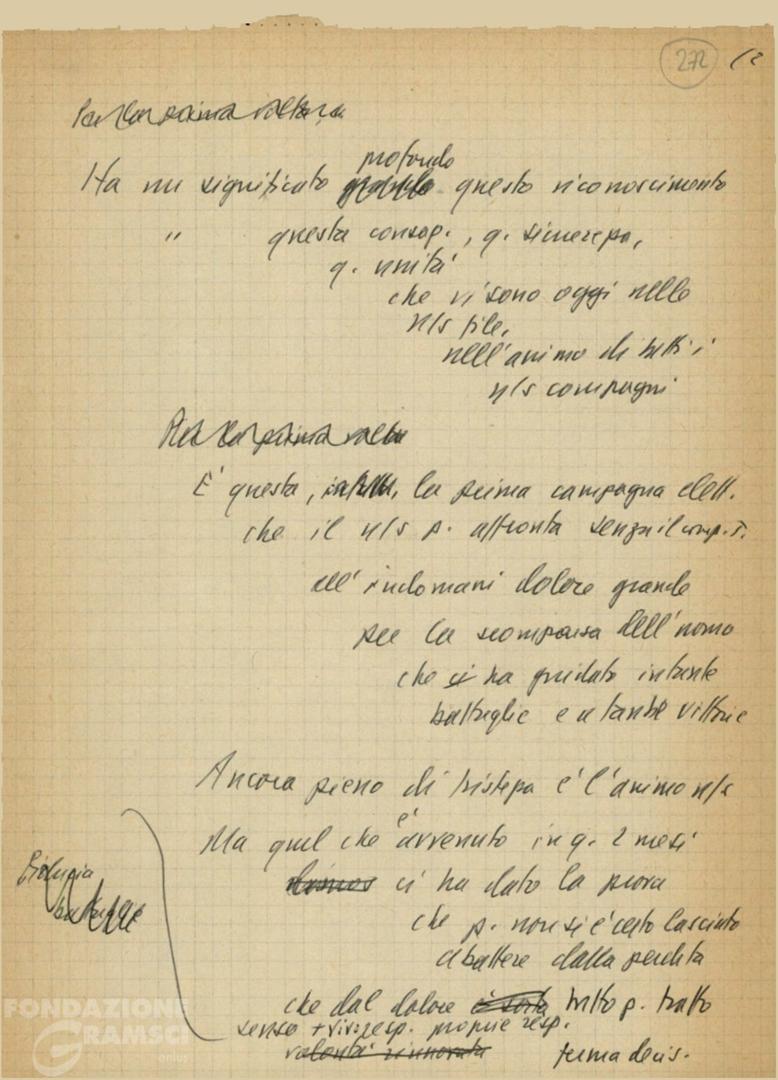 272 12
Per la prima volta
Ha un significato profondo questo riconoscimento
" questa consap., q. sincerezza,
q. unità
che vi sono oggi nelle
n/s file,
nell'animo di tutti i
n/s compagni
Per la prima volta
E' questa, la prima campagna elett.
che il n/s p. affronta senza il comp. T.
all'indomani dolore grande
per la scomparsa dell'uomo
che ci ha guidato in tante
battaglie e a tante vittorie
Ancora pieno di tristezza è l'animo n/s
Ma quel che è avvenuto in q. 2 mesi
ci ha dato la prova
che p. non si è certo lasciato
abbattere dalla perdita
che dal dolore è sorta tutto p. tratto
senso + viv. resp. proprie resp.
volontà rinnovata ferma decis.
FONDAZIONE
GRAMSCI
onlus